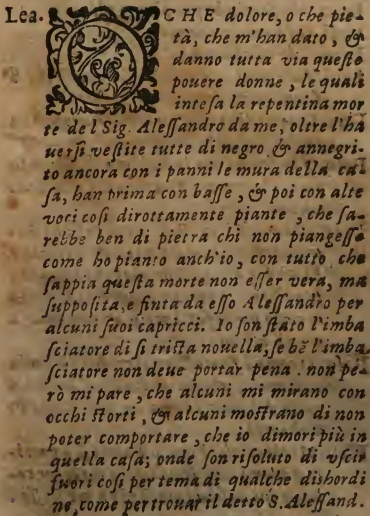 Lea. O CHE dolore, o che pie-
tà, che m'han dato, &
danno tutta via queste
pouere donne, le quali
intesa la repentina mor
te del Sig. Alessandro da me, oltre l'ha
uersi vestite tutte di negro & annegri-
to ancora con i panni le mura della ca-
sa, han prima con basse, & poi con alte
voci così dirottamente piante, che sa-
rebbe ben di pietra chi non piangesse
come ho pianto anch'io, con tutto, che
sappia questa morte non esser vera, ma
supposita, e finta da esso Alessandro per
alcuni suoi capricci. Io son stato l'imba
sciatore di si trista nouella, se bẽ l'imba
sciatore non deue portar pena. non pe-
rò mi pare, che alcuni mi mirano con
occhi storti, & alcuni mostrano di non
poter comportare, che io dimori più in
quella casa; onde son risoluto di vscir
fuori così per tema di qualche dishordi
ne, come per trouar il detto S. Alessand.